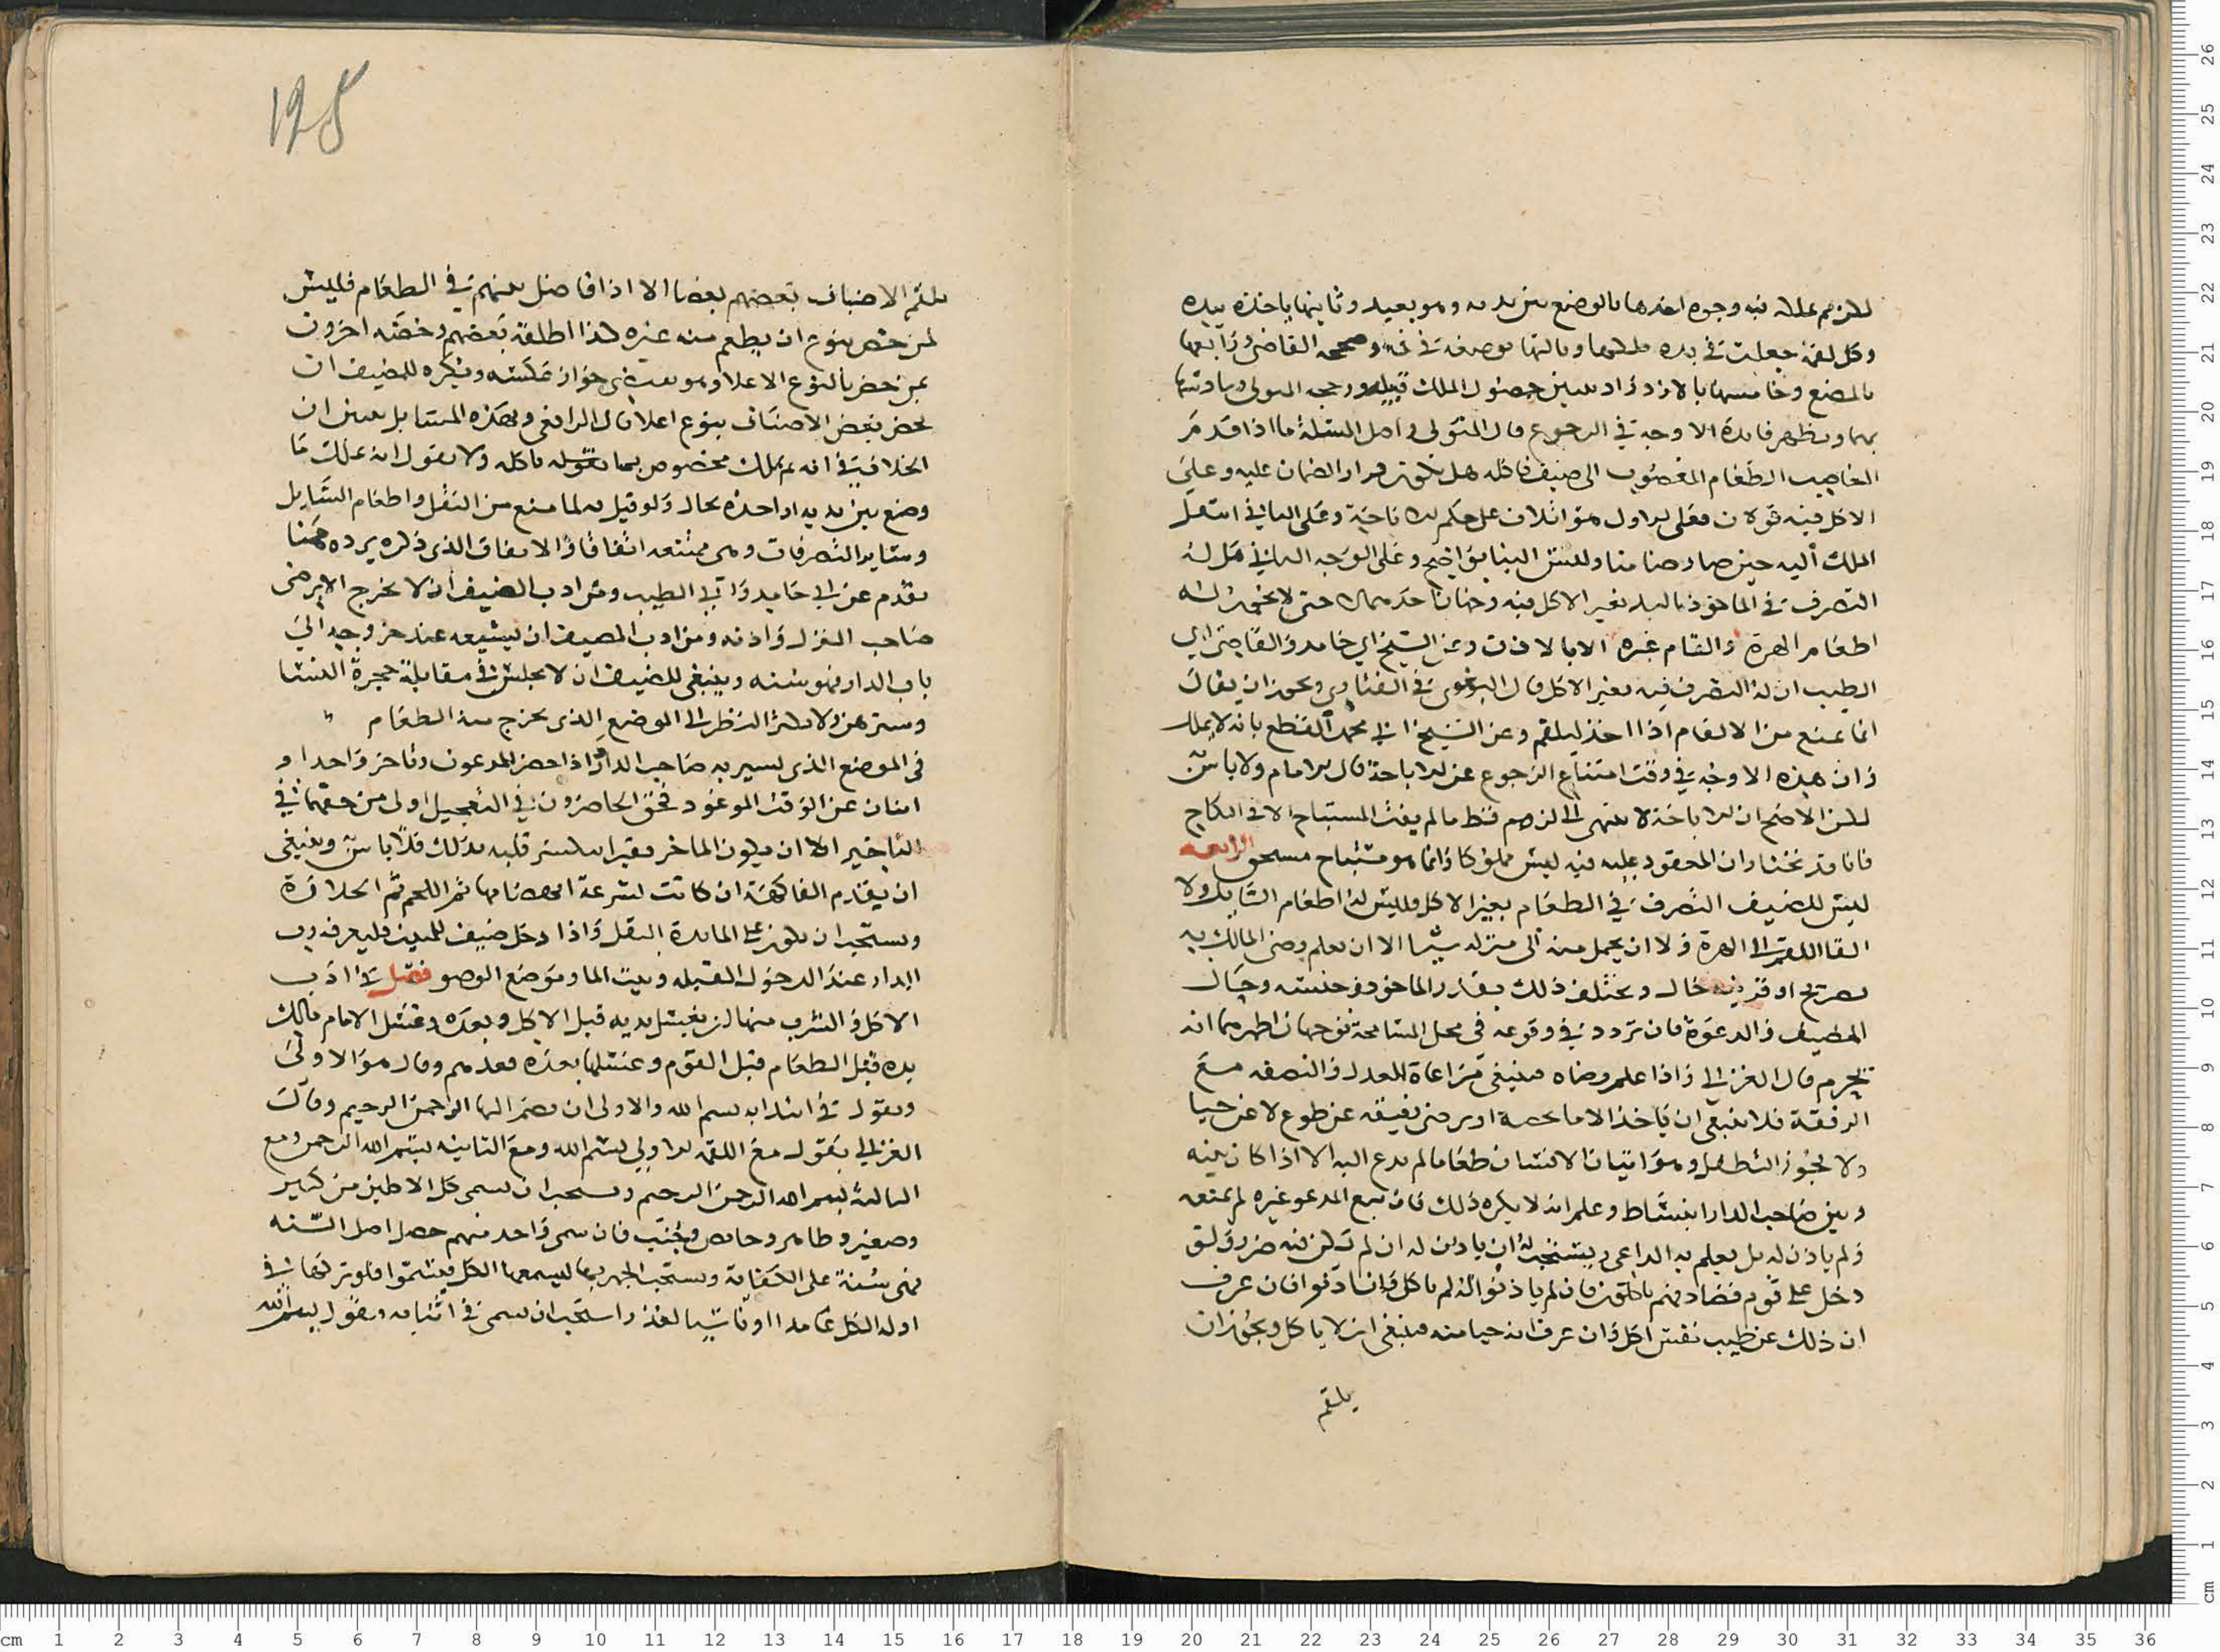 للزم يملك فيه وجوه احدها بالوضع بين يديه وهو بعيد وثانيها ياخذه بيده
وكل لقمة جعلت في يده ملكها وثالثها بوضعه في فمه وصححه القاضي ورابعها
بالمضغ وخامسها بالازدراد يتبين حصول الملك قبيله ورجحه المتولي
بها ويظهر فايدة الاوجه في الرجوع قال المتولي واصل المسئلة ما اذا قدم
الغاصب الطعام المغصوب الى ضيف فاكله هل يكون قرار الضمان عليه وعلى
الاكل فيه قولان فعلى الاول هو اتلاف على حكم الاباحة وعلى الثاني انتقل
الملك اليه حين صار ضامنا وليس البنا بواضح وعلى الوجه الثاني هل له
التصرف في الماخوذ باليد بغير الاكل فيه وجهان احدهما لا حتى لا يجوز له
اطعام الهرة والقام غيره الا بالاذن وعن الشيخ ابي حامد والقاضي ابي
الطيب ان له التصرف فيه بغير الاكل قال البغوي في الفتاوي ويجوز ان يقال
انما يمنع من الالقام اذا اخذ ليلقم وعن الشيخ ابي محمد القطع بانه لا يملك
وان هذه الاوجه في وقت امتناع الرجوع عن الاباحة قال الامام ولا باس
لكن الاصح ان الاباحة لا تنتهي الى لزوم قط ما لم يفت المستباح الا في النكاح
فانا قد نختار ان المعقود عليه فيه ليس مملوكا وانما هو مستباح مستحق الرابعه
ليس للضيف التصرف في الطعام بغير الاكل وليس له اطعام السايل ولا
القا اللقم الى الهرة ولا ان يحمل منه الى منزله شيا الا ان يعلم رضى المالك به
بصريح او قرينة حال ويختلف ذلك بقدر الماخوذ وجنسه وحال
المضيف والدعوة فان تردد في وقوعه في محل المسامحة فوجهان اظهرهما انه
يحرم قال الغزالي واذا علم رضاه فينبغي مراعاة العدل والنصفة مع
الرفقة فلا ينبغي ان ياخذ الا ما يخصه او يرضى رفيقه عن طوع لا عن حيا
ولا يجوز التطفل وهو اتيان الانسان طعاما لم يدع اليه الا اذا كان بينه
وبين صاحب الدار انبساط وعلم انه لا يكره ذلك فان تبع المدعو غيره لم يمنعه
ولم ياذن له بل يعلم به الداعي ويستحب له ان ياذن له ان لم يكن فيه ضرر ولو
دخل على قوم فصادفهم ياكلون فان لم ياذنوا له لم ياكل وان اذنوا فان عرف
ان ذلك عن طيب نفس اكل وان عرف انه حيا منه فينبغي ان لا ياكل ويجوز ان
يلقم
125
يلقم الاضياف بعضهم بعضا الا اذا فاضل بينهم في الطعام فليس
لمن خص بنوع ان يطعم منه غيره كذا اطلقه بعضهم وخصه اخرون
بمن خص بالنوع الاعلا وهو يقتضي جواز عكسه ويكره للمضيف ان
يخص بعض الاصناف بنوع اعلا قال الرافعي وهذه المسايل تبين ان
الخلاف في انه يملك مخصوص بما ياكله ولا يقول انه يملك ما
وضع بين يديه او اخذه بحال ولو قيل به لما منع من النقل واطعام السايل
وساير التصرفات وهي ممتنعه اتفاقا والاتفاق الذي ذكره يرده ههنا
تقدم عن ابي حامد وابي الطيب ومن ادب الضيف ان لا يخرج الا برضى
صاحب المنزل واذنه ومن ادب المضيف ان يشيعه عند خروجه الى
باب الدار فهو سنه وينبغي للضيف ان لا يجلس في مقابلة حجرة النسا
وسترهن ولا يكثر النظر الى الموضع الذي يخرج منه الطعام
في الموضع الذي يسير به صاحب الدار واذا حضر المدعوون وتاخر واحد او
اثنان عن الوقت الموعود فحق الحاضرون في التعجيل اولى من حقهما في
التاخير الا ان يكون الماخر فقيرا ينكسر قلبه بذلك فلا باس وينبغي
ان يقدم الفاكهة ان كانت لسرعة انهضامها ثم اللحم ثم الحلاوة
ويستحب ان يكون على المايدة البقل واذا دخل ضيف للمبيت فليعرفه رب
الدار عند الدخول القبله وبيت الما وموضع الوضو فصل في ادب
الاكل والشرب منها ان يغسل يديه قبل الاكل وبعده وغسل الامام مالك
يده قبل الطعام قبل القوم وغسلها بعده بعدهم وقال هو الاولى
ويقول في ابتدايه بسم الله والاولى ان يضم اليها الرحمن الرحيم وقال
الغزالي يقول مع اللقمة الاولى بسم الله ومع الثانيه بسم الله الرحمن ومع
الثالثة بسم الله الرحمن الرحيم ويستحب ان يسمى كل الاكلين من كبير
وصغير وطاهر وحايض وجنب فان سمى واحد منهم حصل اصل السنه
فهي سنة على الكفاية ويستحب الجهر بها ليسمعها الكل فيسموا فلو تركها في
اول الاكل عامدا او ناسيا لعذر استحب ان يسمى في اثنايه ويقول بسم الله